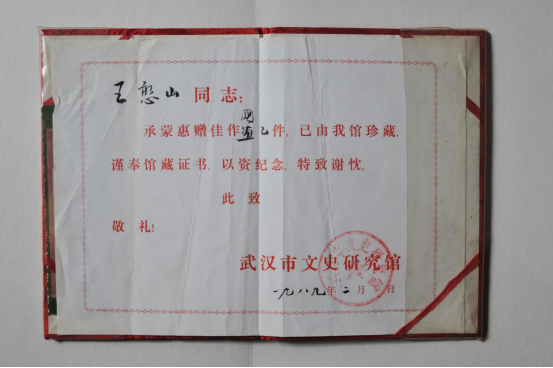 王憨山 同志:
承蒙惠赠佳作国画乙件, 已由我馆珍藏,
谨奉馆藏证书, 以资纪念, 特致谢忱,
此致
敬礼!
武汉市文史研究馆
一九八九年二月 日